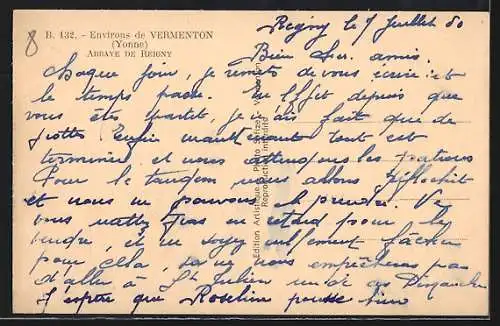 8
B. 132. - Environs de VERMENTON
(Yonne)
ABBAYE DE REIGNY
Regny le 7 Juillet 50
Bien chers amis.
Chaque jour, je remets de vous écrire et
le temps passe. En effet depuis que
vous êtes partit, je n'ais fait que de
Enfin maintenant tout est
terminer et nous attendons les
Pour le tandem nous allons réfléchir
et nous ne pouvons le prendre. Ne
vous mettez pas en retard pour le
vendre, et ne soyez nullement fâcher
pour cela, sa ne nous empêchera pas
d'aller à St Julien un de ces Dimanches
J'espère que Roseline pousse bien
Edition Artistique
Reproduction interdite